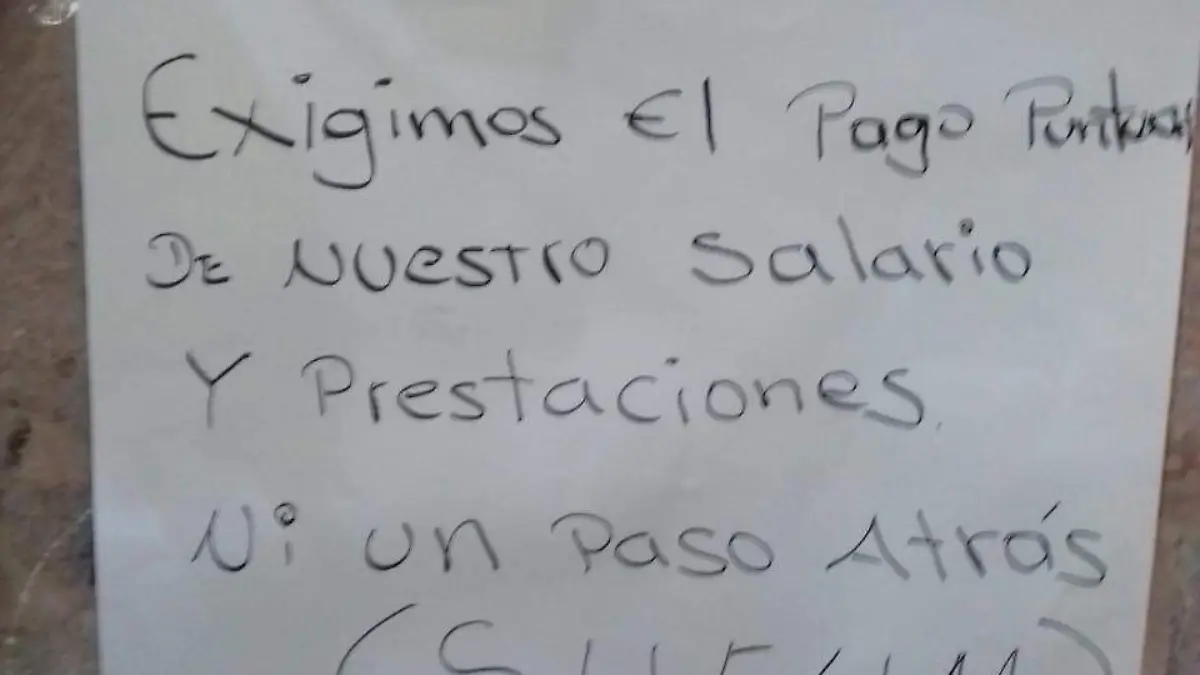 Exigimos El Pago Puntual
DE NUESTRO Salario
Y Prestaciones.
Ni un Paso Atrás